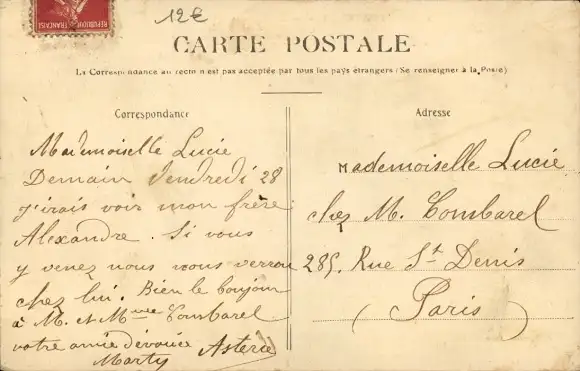 RÉPUBLIQUE FRANÇAISE
12€
CARTE POSTALE
La Correspondance au recto n'est pas acceptée par tous les pays étrangers (Se renseigner à la Poste)
Correspondance
Mademoiselle Lucie
Demain Vendredi 28
j'irais voir mon frère
Alexandre. Si vous
y venez nous nous verrons
chez lui. Bien le bonjour
à M. et Mme Combarel
votre amie dévouée Asterie
Marty
Adresse
Mademoiselle Lucie
chez M. Combarel
285. Rue St Denis
(Paris)